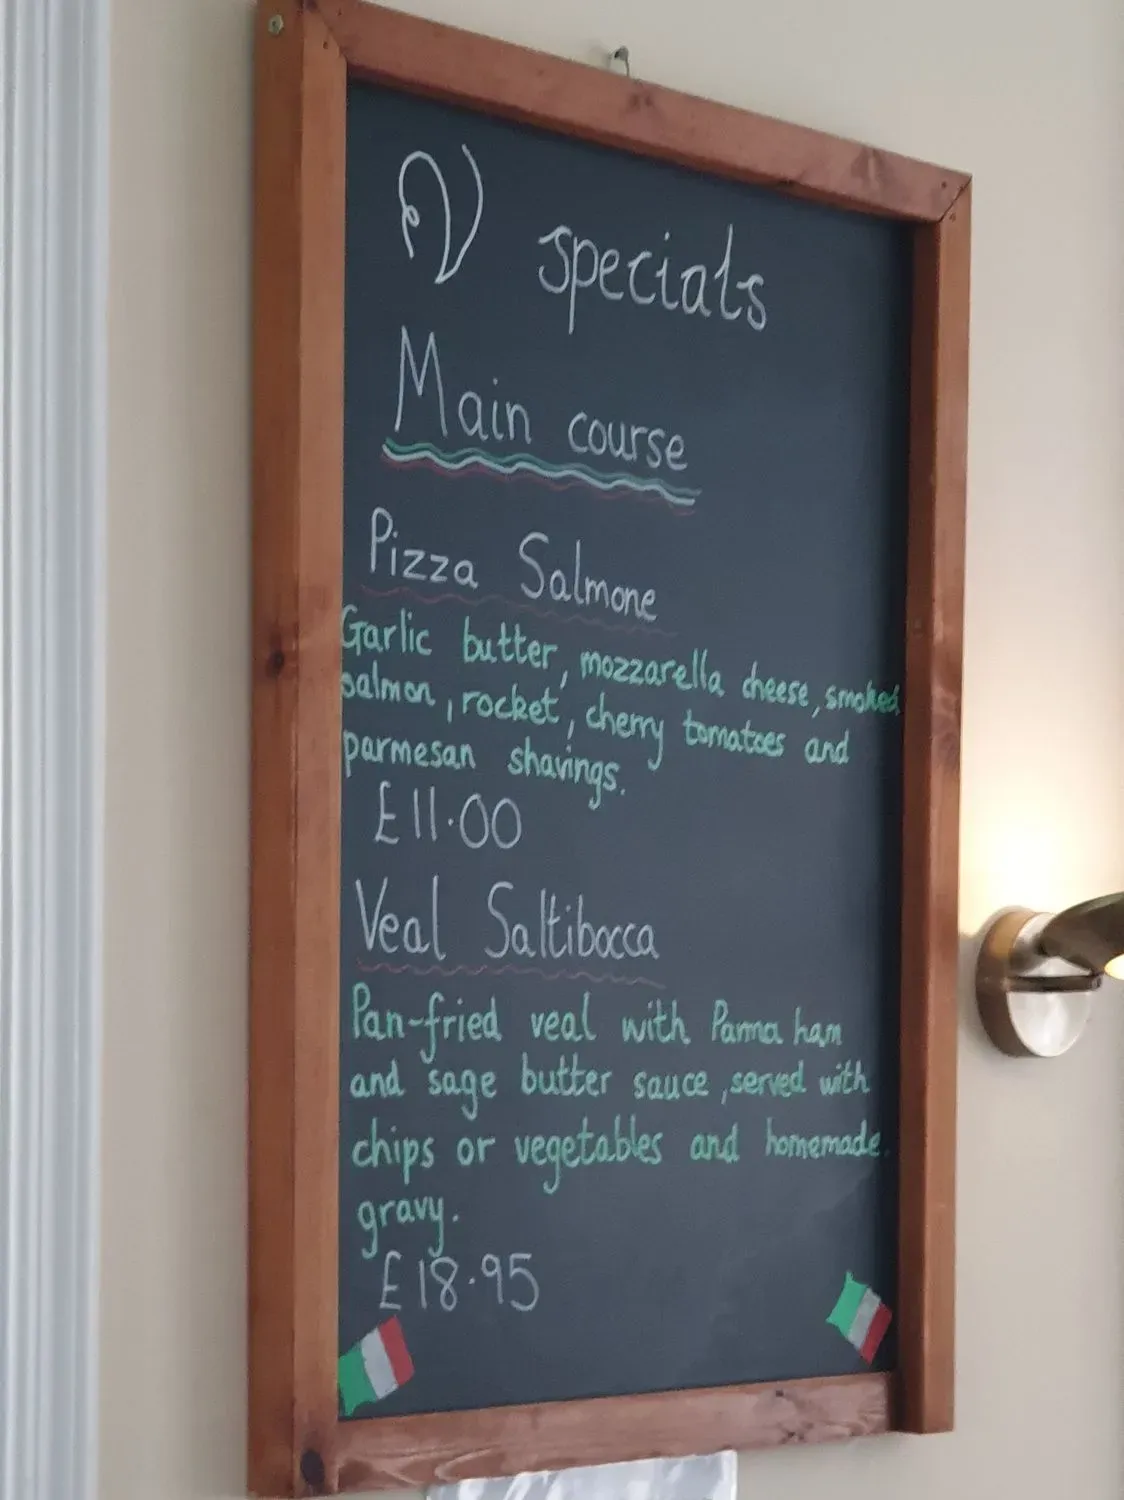 V specials
Main course
Pizza Salmone
Garlic butter, mozzarella cheese, smoked
salmon, rocket, cherry tomatoes and
parmesan shavings.
£11.00
Veal Saltibocca
Pan-fried veal with Parma ham
and sage butter sauce, served with
chips or vegetables and homemade
gravy.
£18.95